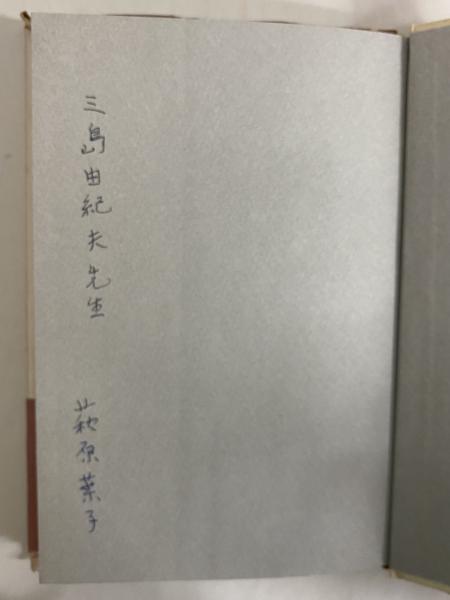 三島由紀夫先生
萩原葉子